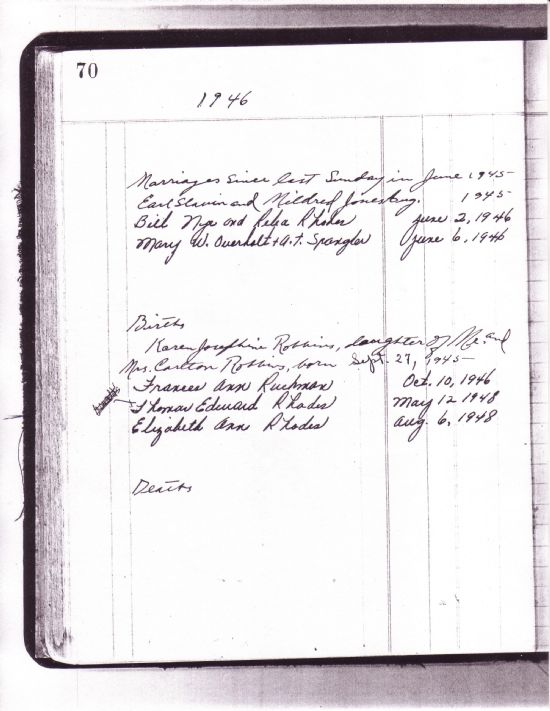 70
1946
Marriages since last Sunday in June 1945
Earl Slavin and Mildred Jones Aug. 1945
Bill Nye and Relia Rhodes June 2, 1946
Mary W. Overholt + A.T. Spangler June 6, 1946
Births
Karen Josephine Robbins, daughter of Mr. and
Mrs. Carlton Robbins, born Sept. 27, 1945
Frances Ann Ruckman Oct. 10, 1946
Thomas Edward Rhodes May 12 1948
Elizabeth Ann Rhodes Aug. 6, 1948
Deaths